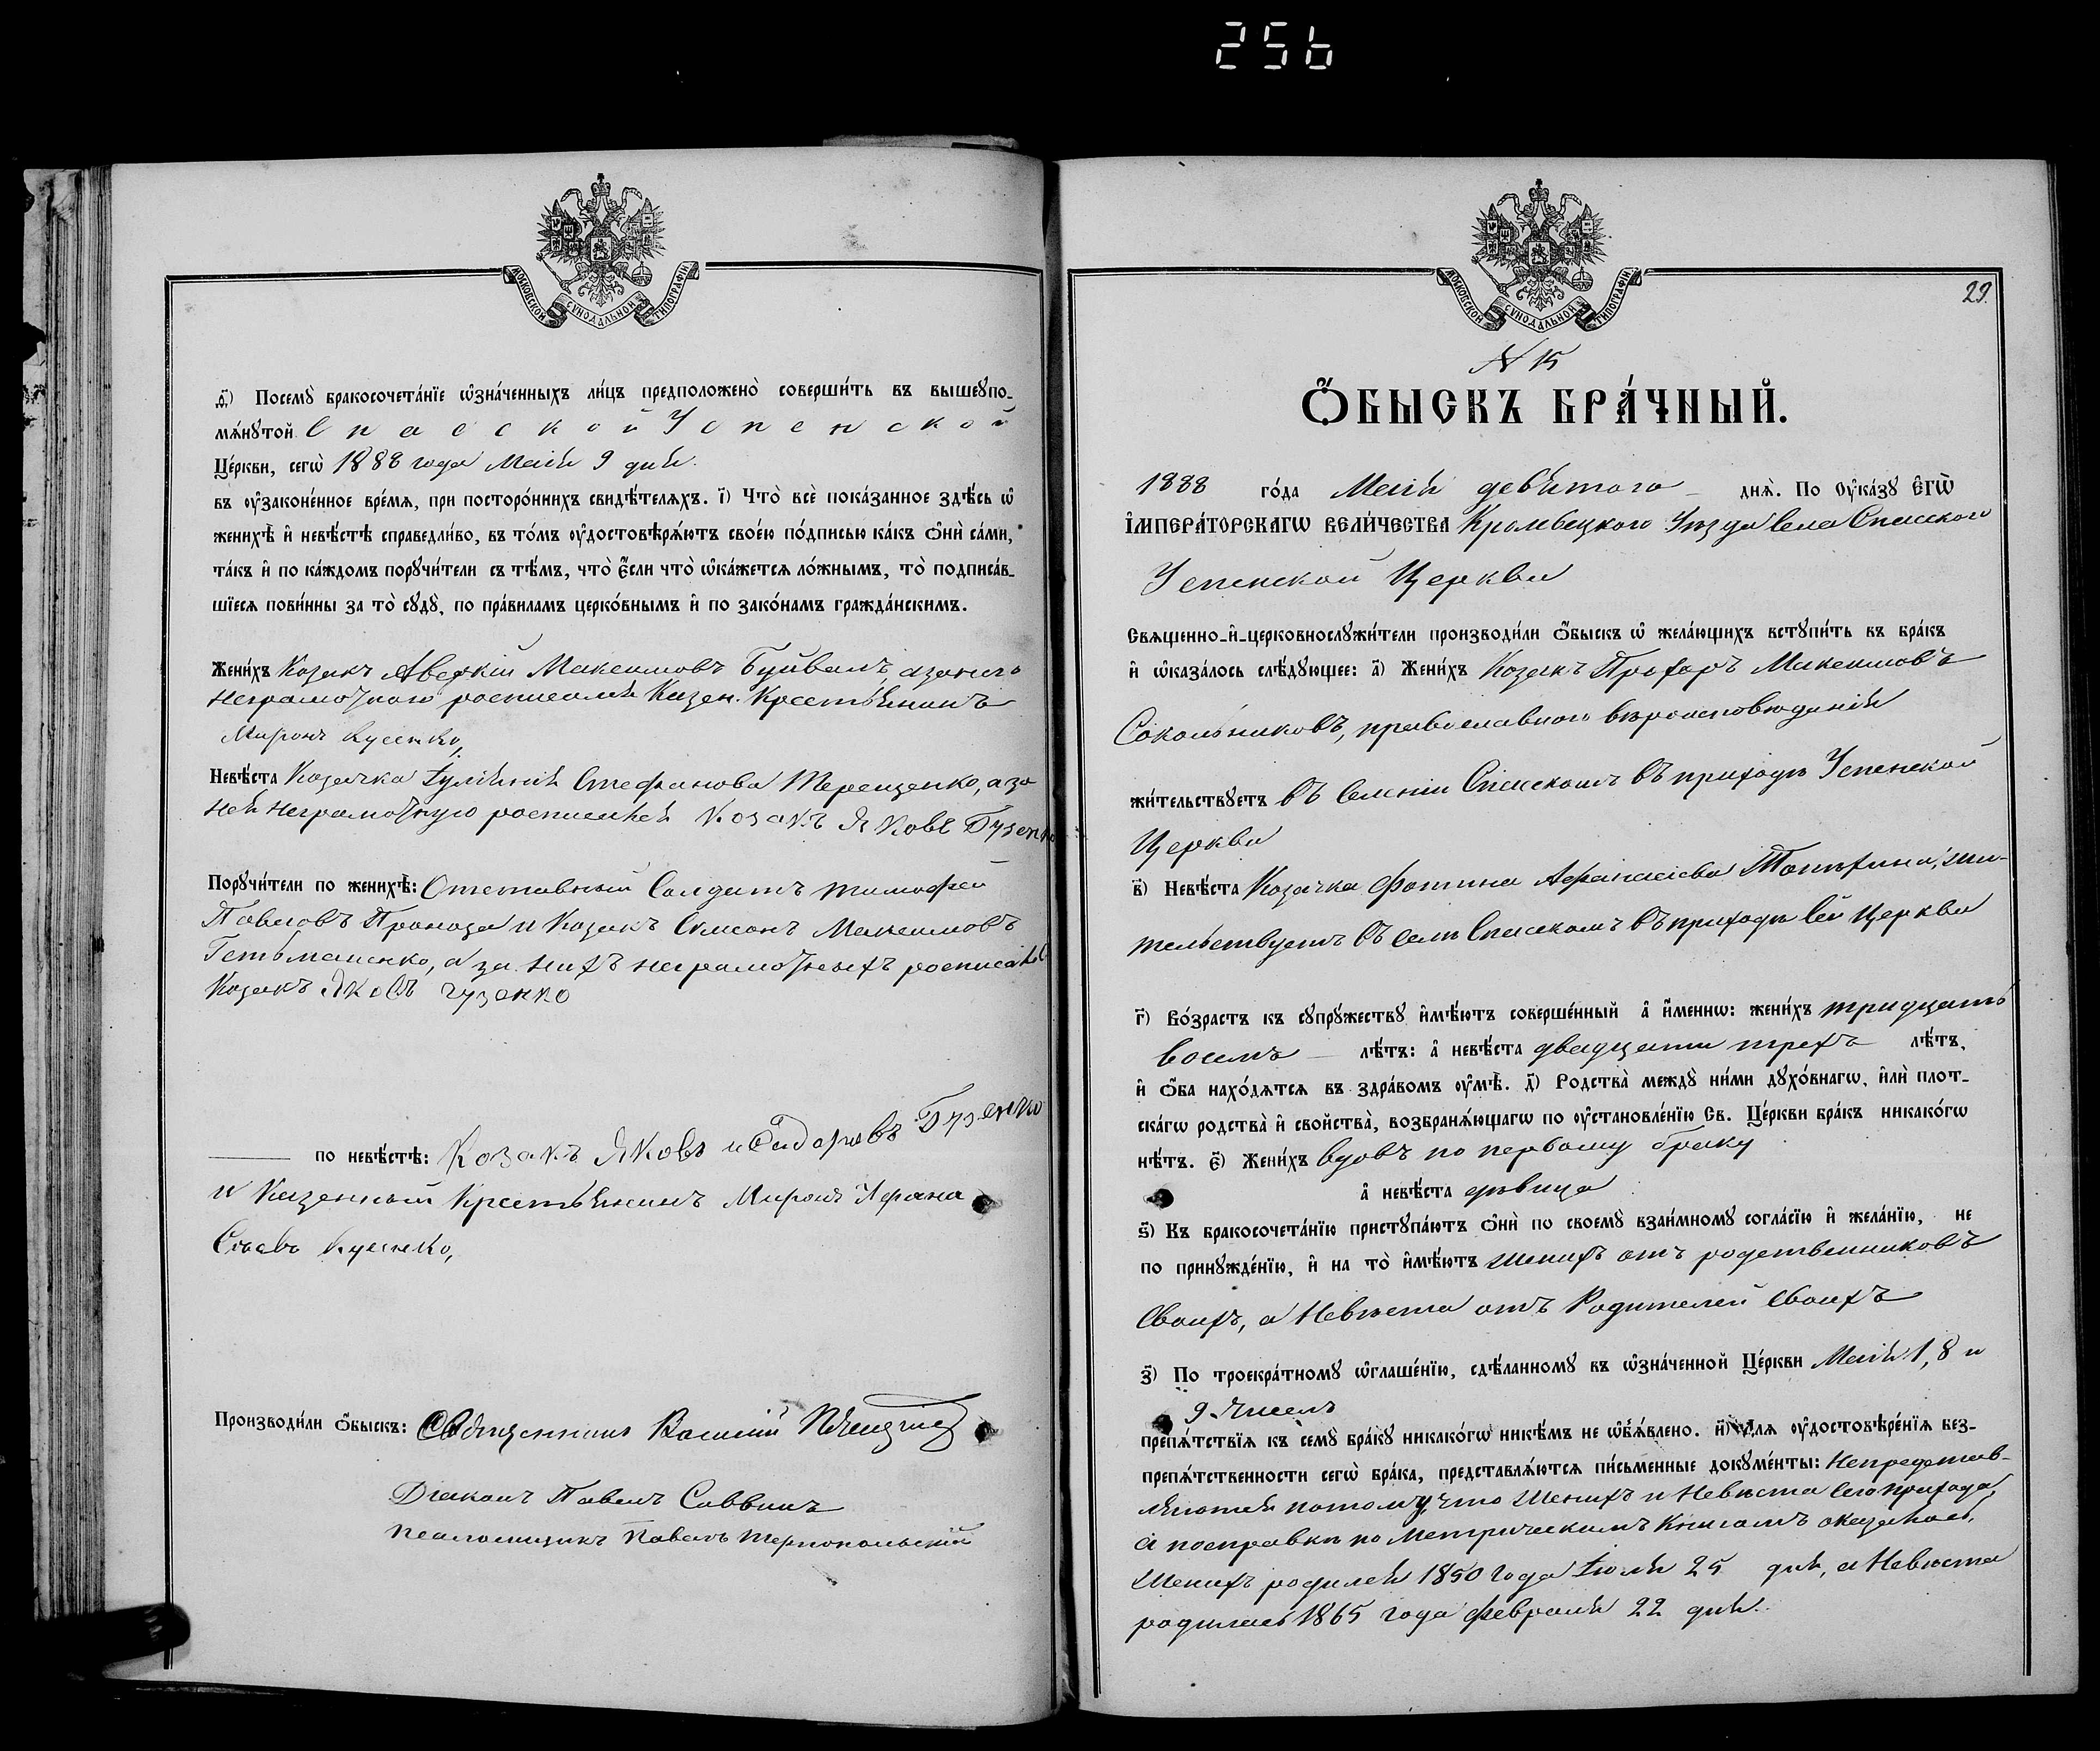 256
МОСКОВСКОЙ СѴНОДАЛЬНОЙ ТИПОГРАФІИ
д҃) Посемꙋ̀ бракосочета́нїе ѡ҆зна́ченныхъ ли́цъ предположено̀ соверши́ть въ вышеꙋпо-
мѧ́нꙋтой Спасской Успенской
Це́ркви, сегѡ̀ 1888 года Маія 9 дня.
въ ᲂу҆законе́нное вре́мѧ, при посторо́ннихъ свидѣ́телѧхъ. і҃) Что̀ всѐ пока́занное здѣ́сь ѡ҆
женихѣ̀ и҆ невѣ́стѣ справедли́во, въ то́мъ ᲂу҆достовѣрѧ́ютъ свое́ю по́дписью ка́къ ѻ҆нѝ са́ми,
та́къ и҆ по ка́ждомъ порꙋчи́тели съ тѣ́мъ, что̀ є҆́сли что̀ ѡ҆ка́жетсѧ ло́жнымъ, то̀ подписа́в-
шїесѧ пови́нны за то̀ сꙋдꙋ̀, по пра́виламъ церко́внымъ и҆ по зако́намъ гражда́нскимъ.
Жени́хъ Козакъ Аверкій Максимовъ Буйвалъ, а за него
неграмотного росписался Казен. Крестьянинъ
Миронъ Кусенко,
Невѣ́ста Козачка Іуліянія Стефанова Терещенко, а за
ней неграмотную росписался Козакъ Яковъ Гузенко
Порꙋчи́тели по женихѣ̀: Отставный Солдатъ Тимофей
Павловъ Проноза и Козакъ Симеонъ Максимовъ
Гетьманенко, а за нихъ неграмотныхъ росписалъ
Козакъ Яковъ Гузенко
по невѣ́стѣ: Козакъ Яковъ Сидоровъ Гузенко
и Казенный Крестьянинъ Миронъ
Кусенко,
Производи́ли ѻ҆́быскъ: Священникъ Василій
Діаконъ Павелъ Саввинъ
Псаломщикъ Павелъ Тернопольскій
МОСКОВСКОЙ СѴНОДАЛЬНОЙ ТИПОГРАФІИ
29.
N 15
Ѻ҆́БЫСКЪ БРА́ЧНЫЙ.
1888 го́да Маія девятого днѧ̀. По Оу҆ка́зꙋ Є҆гѡ̀
І҆мпера́торскагѡ Вели́чества Кролевецкого Уѣзда Села Спасского
Успенской Церкви
Свѧщенно-и҆-церковнослꙋжи́тели производи́ли ѻ҆́быскъ ѡ҆ жела́ющихъ встꙋпи́ть въ бра́къ
и҆ ѡ҆каза́лось слѣ́дꙋющее: а҃) Жени́хъ Козакъ Прохоръ Максимовъ
Сокольниковъ, православного вѣроисповюданія
жи́тельствꙋетъ въ Селеніи Спасскомъ въ приходѣ Успенской
Церкви
в҃) Невѣ́ста Козачка Фотина Афанасіева, жи-
тельствуетъ въ Селѣ Спасскомъ въ приходѣ сей Церкви
г҃) Во́зрастъ къ сꙋпрꙋ́жествꙋ и҆мѣ́ютъ соверше́нный а҆ и҆́меннѡ: жени́хъ тридцать
восемъ лѣ́тъ: а҆ невѣ́ста двадцати трехъ лѣ́тъ,
и҆ ѻ҆́ба нахо́дѧтсѧ въ здра́вомъ ᲂу҆мѣ̀. д҃) Родства̀ междꙋ̀ ни́ми дꙋхо́внагѡ, и҆лѝ плот-
ска́гѡ родства̀ и҆ свойства̀, возбранѧ́ющагѡ по ᲂу҆становле́нїю Св. Це́ркви бра́къ никако́гѡ
нѣ́тъ. є҃) Жени́хъ вдовъ по первому браку
а҆ невѣ́ста дѣвица
ѕ҃) Къ бракосочета́нїю пристꙋпа́ютъ ѻ҆нѝ по своемꙋ̀ взаи́мномꙋ согла́сїю и҆ жела́нїю, не
по принꙋжде́нїю, и҆ на то̀ и҆мѣ́ютъ Женихъ отъ родственниковъ
своихъ, а Невѣста отъ Родителей своихъ
з҃) По троекра́тномꙋ ѡ҆глаше́нїю, сдѣ́ланномꙋ въ ѡ҆зна́ченной Це́ркви Маія 1, 8 и
9 чиселъ
препѧ́тствїѧ къ семꙋ̀ бра́кꙋ никако́гѡ никѣ́мъ не ѡ҆б̾ѧ́влено. и҃) Длѧ ᲂу҆достовѣре́нїѧ без-
препѧ́тственности сегѡ̀ бра́ка, представлѧ́ютсѧ пи́сьменные докꙋме́нты: Непредстав-
ляются потому что Женихъ и Невѣста сего прихода,
а посправкѣ по Метрическимъ Книгамъ оказалось,
Женихъ родился 1850 года Іюля 25 дня, а Невѣста
родилась 1865 года февраля 22 дня.